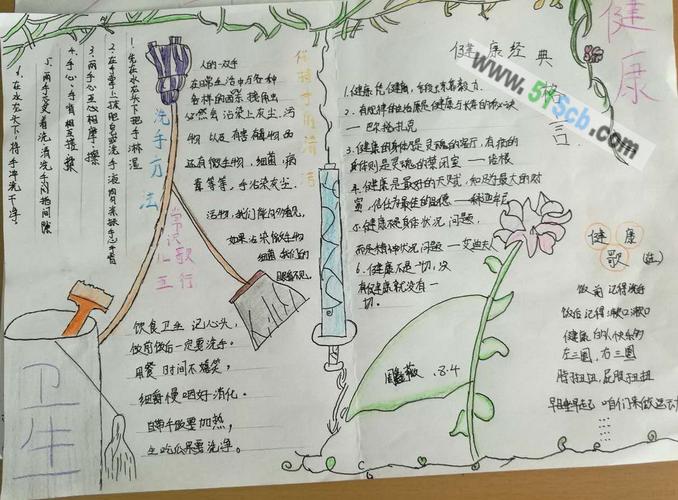 健康
格言
健康经典
www.515cb.com
1.健康绝健康，
2.有规律的生活原是健康与长寿的秘诀
——巴尔扎克
3.健康的身体是灵魂的客厅，有病的
身体则是灵魂的禁闭室——培根
4.健康是最好的天赋，知足是最大的财
富，信任为最佳的品德——释迦牟尼
5.健康不是身体状况问题，
而是精神状况问题——艾迪夫人
6.健康不是一切，没
有健康就没有一
切。
健康
歌
饭前记得洗手
饭后记得漱口漱口
健康的人快乐的
左三圈，右三圈
脖扭扭，屁股扭扭
早睡早起 咱们来做运动
8.4
保持手的清洁
人的一双手
在日常生活中与各种
各样的东西 接触
必然会沾染上灰尘，污
物 以及有害植物 西
还有微生物，细菌，病
毒等等，手沾染灰尘、
污物，我们能肉眼见，
如果沾染微生物
细菌 我们的
眼看不见。
洗手方法
1.先在水龙头下把手淋湿
2.在手掌上抹肥皂或洗手液
3.两手心互心相摩擦
4.手心、手背相互搓揉
5.两手交叉着洗 清洗手间指间隙
6.在水龙头下，将手冲洗干净
常识歌
儿五行
饮食卫生 记心头，
饭前饭后一定要洗手。
用餐时间不嬉笑，
细嚼慢咽好消化。
自带午饭要加热，
生吃瓜果要洗净。
卫生